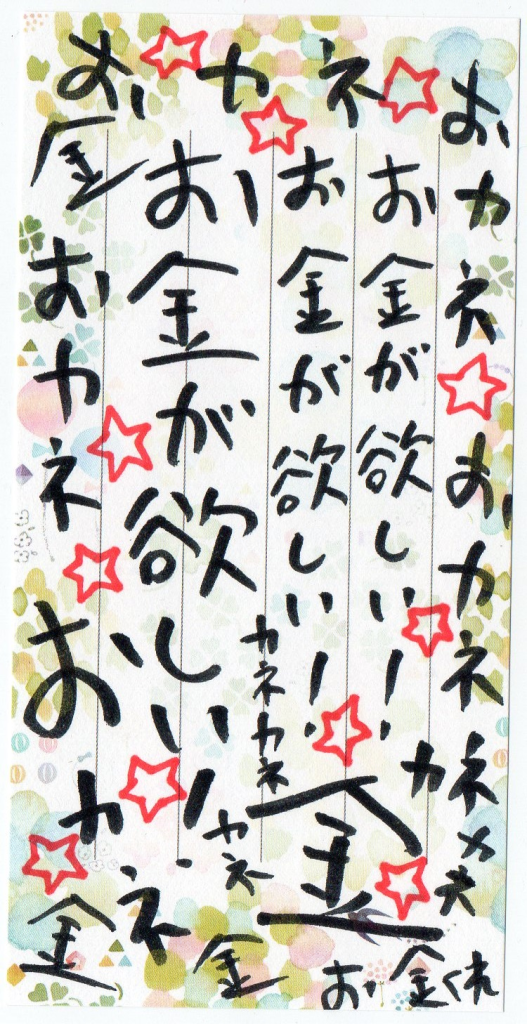 おカネ
おカネ
おカネ
お金が欲しい!
お金が欲しい!
お金が欲しい!
カネカネ
カネ
金
カネ
金
おカネ
おカネ
金
金
お金くれ